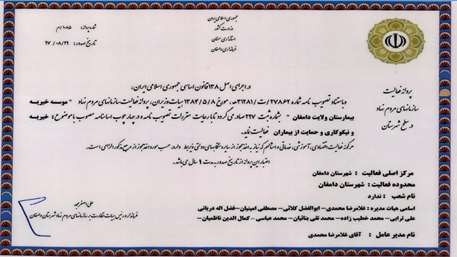 جمهوری اسلامی ایران
وزارت کشور
استانداری سمنان
فرمانداری دامغان
شماره پروانه: ۱۰۸۵/م
تاریخ صدور: ۹۷/۰۸/۲۹
پروانه فعالیت
سازمانهای مردم نهاد
در سطح شهرستان
در اجرای اصل ۱۳۸ قانون اساسی جمهوری اسلامی ایران،
و باستناد تصویب نامه شماره ۲۷۸۶۲/ت/۳۱۲۸۱هـ، مورخ ۱۳۸۴/۵/۸ هیات وزیران، پروانه فعالیت سازمانهای مردم نهاد - موسسه خیریه
بیمارستان ولایت دامغان - بشماره ثبت ۲۲۷ صادر می گردد تا با رعایت مقررات تصویب نامه و در چارچوب اساسنامه مصوب با موضوع : خیریه
و نیکوکاری و حمایت از بیماران فعالیت نماید.
اعتبار این پروانه از تاریخ صدور به مدت ۱ سال می باشد.
مرکز اصلی فعالیت : شهرستان دامغان
محدوده فعالیت : شهرستان دامغان
نام شعب : ندارد
اسامی هیات مدیره : غلامرضا محمدی - ابوالفضل کلاتی - مصطفی امینیان - فضل اله دربانی
علی ترابی - محمد خطیب زاده - محمد تقی بنائیان - محمد عباسی - کمال الدین ناظمیان
نام مدیر عامل : آقای غلامرضا محمدی